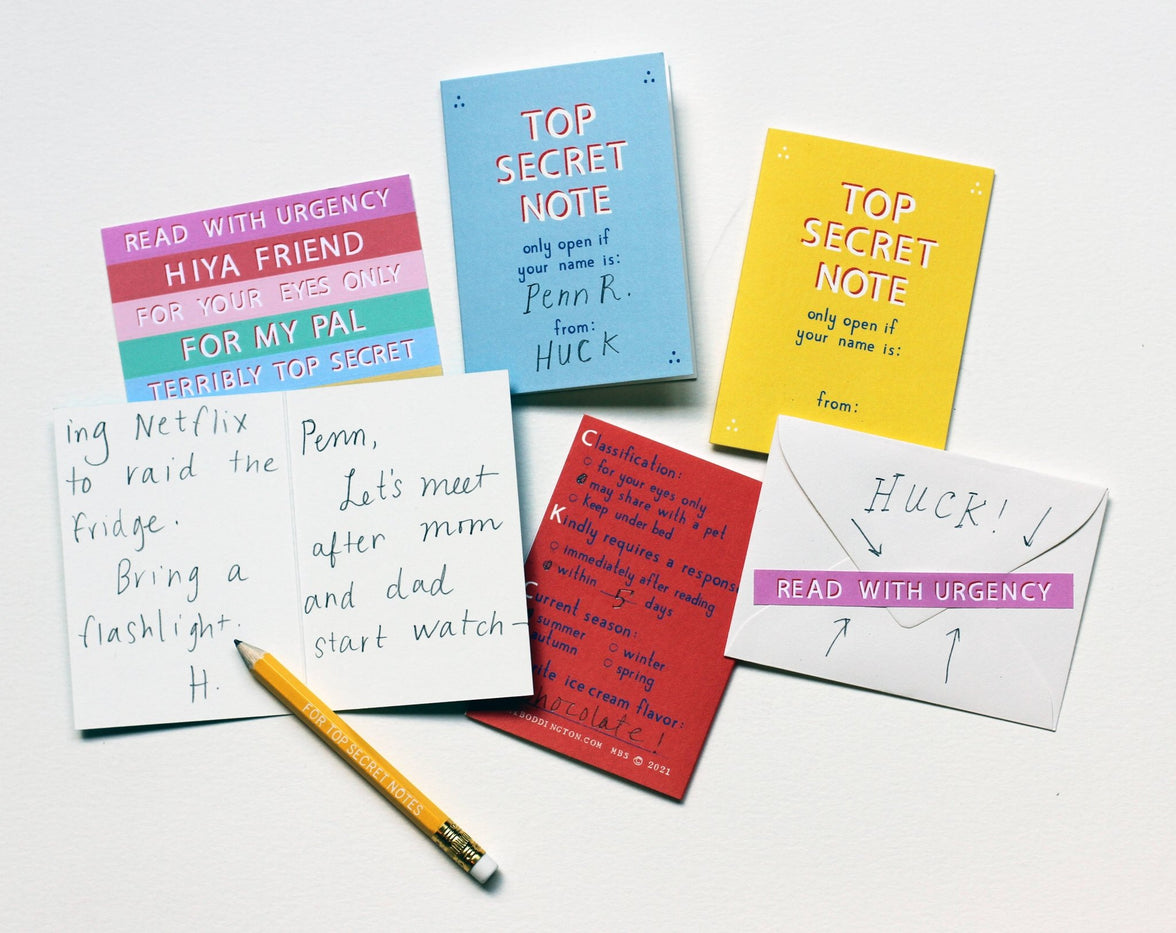 READ WITH URGENCY
HIYA FRIEND
FOR YOUR EYES ONLY
FOR MY PAL
TERRIBLY TOP SECRET
TOP
SECRET
NOTE
only open if
your name is:
Penn R.
from:
HUCK
TOP
SECRET
NOTE
only open if
your name is:
from:
ing Netflix
to raid the
fridge.
Bring a
flashlight.
H.
Penn,
Let's meet
after mom
and dad
start watch-
Classification:
for your eyes only
may share with a pet
Keep under bed
Kindly requires a respons
immediately after reading
within 5 days
Current season:
summer
winter
autumn
spring
ice cream flavor:
chocolate!
BODDINGTON.COM MBS © 2021
HUCK!
READ WITH URGENCY
FOR TOP SECRET NOTES